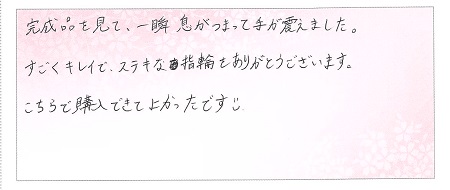 完成品を見て、一瞬息がつまって手が震えました。
すごくキレイで、ステキな指輪をありがとうございます。
こちらで購入できてよかったです